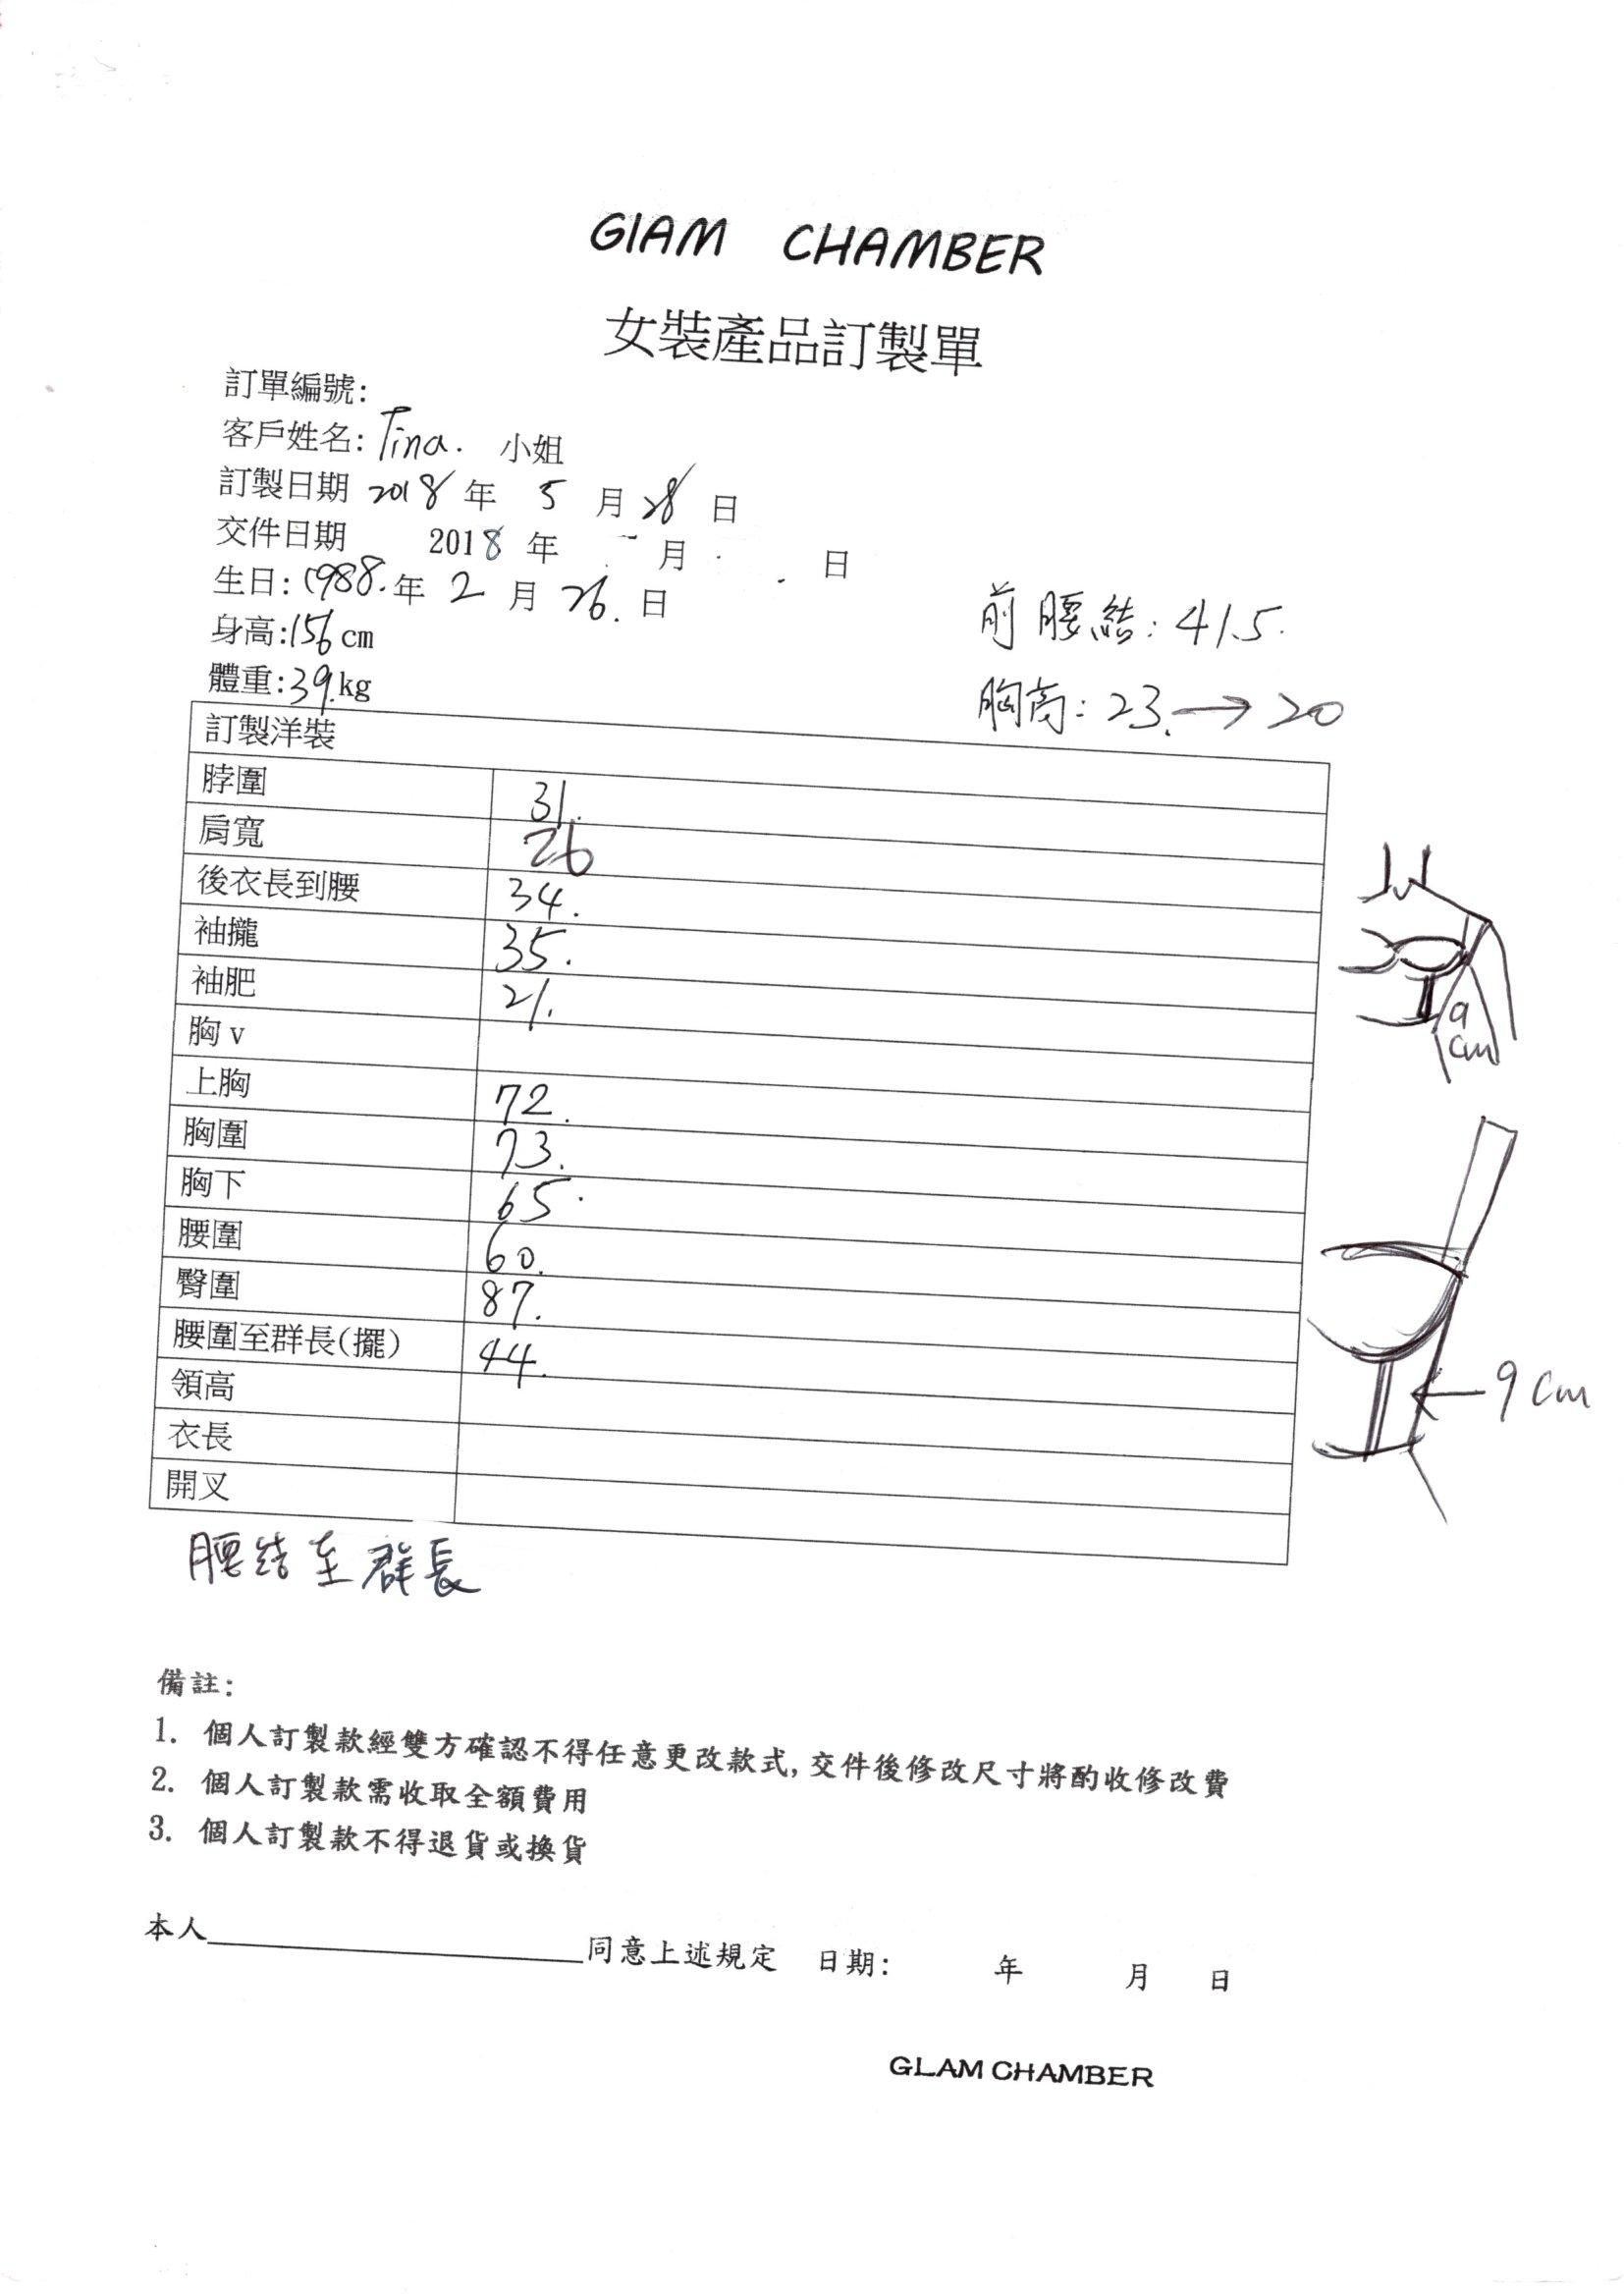 GIAM CHAMBER
女裝產品訂製單
訂單編號:
客戶姓名: Tina. 小姐
訂製日期 2018 年 5 月 28 日
交件日期 2018 年 月 日
生日: 1988. 年 2 月 26. 日
身高:156 cm
前腰結: 41.5.
體重:39.kg
胸高: 23. → 20
訂製洋裝
脖圍 31.
肩寬 26
後衣長到腰 34.
袖攏 35.
袖肥 21.
胸 v
9 cm
上胸 72.
胸圍 73.
胸下 65.
腰圍 60.
臀圍 87.
腰圍至群長(擺) 44.
領高
9 cm
衣長
開叉
腰結至群長
備註:
1. 個人訂製款經雙方確認不得任意更改款式,交件後修改尺寸將酌收修改費
2. 個人訂製款需收取全額費用
3. 個人訂製款不得退貨或換貨
本人 同意上述規定 日期: 年 月 日
GLAM CHAMBER